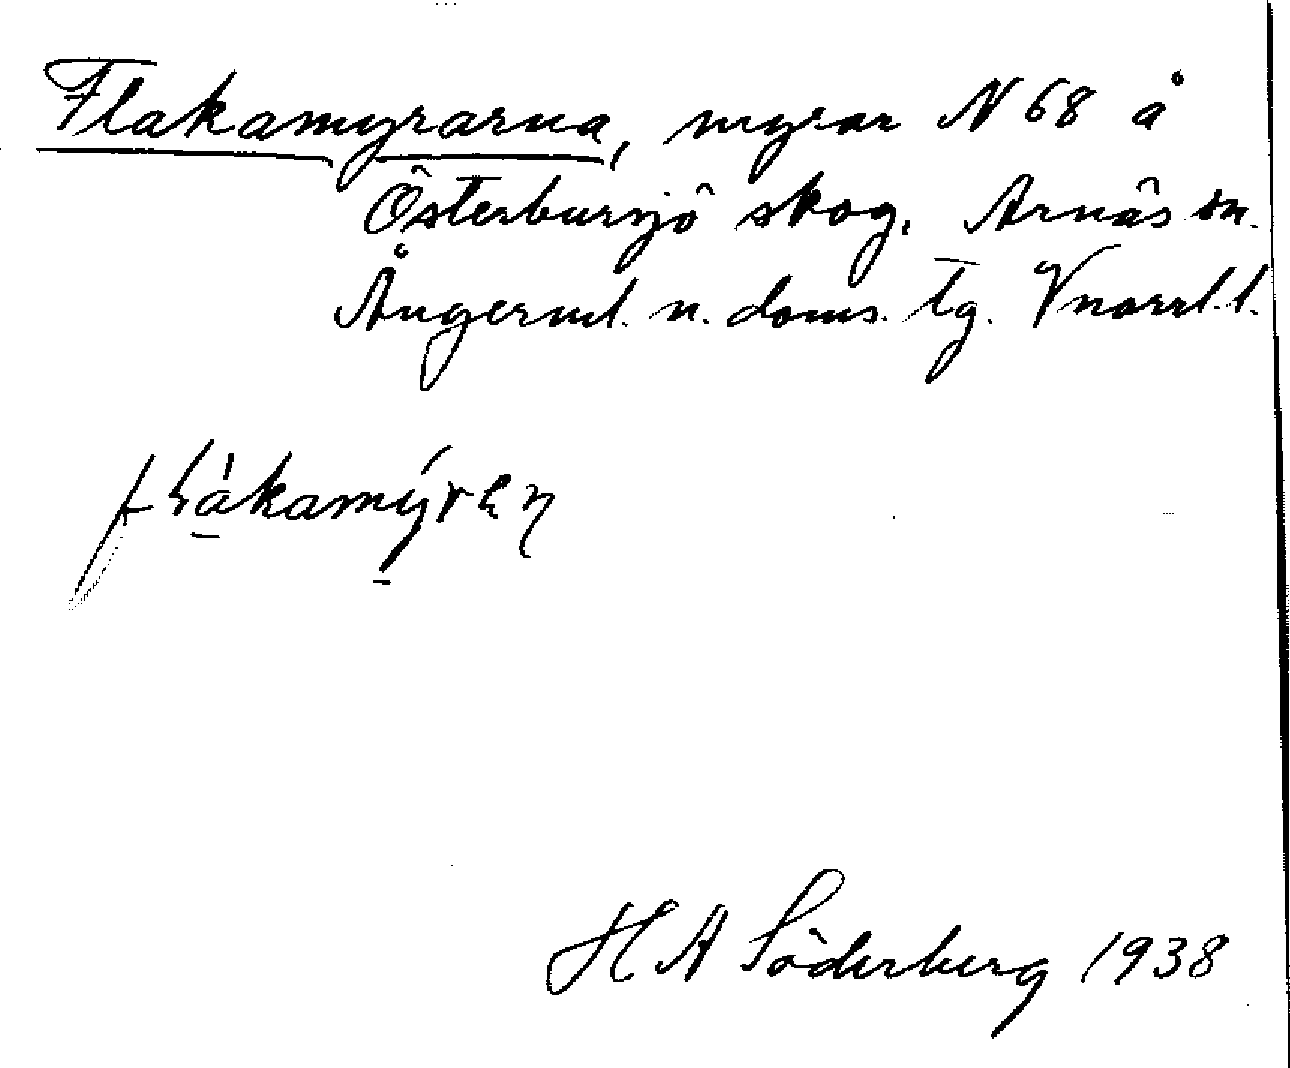 Flakamyrarna, myrar N 68 å
Österbursjö skog, Arnäs sn.
Ångerml. n. doms. tg. Vnorrl. l.
H A Söderberg 1938